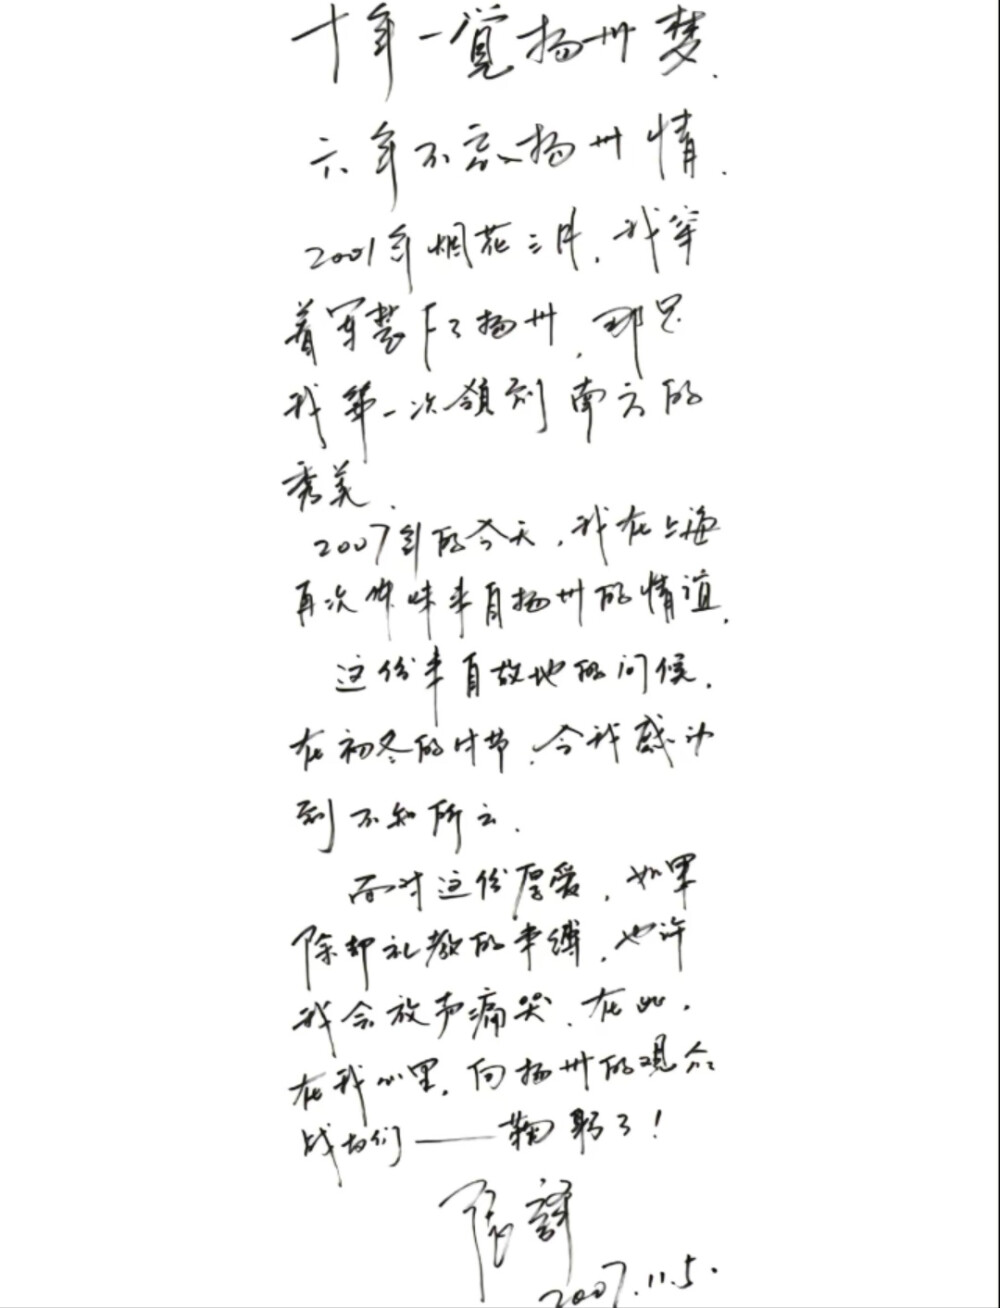 十年一觉扬州梦.
六年不忘扬州情.
2001年烟花三月，我穿
着军装下了扬州，那是
我第一次领到南方的
秀美.
2007年的今天，我在上海
再次体味来自扬州的情谊.
这份来自故地的问候，
在初冬的时节，令我感动
到不知所云.
面对这份厚爱，如果
除却礼教的束缚，也许
我会放声痛哭.在此，
在我心里，向扬州的观众
战友们——鞠躬了!
张译
2007.11.5.